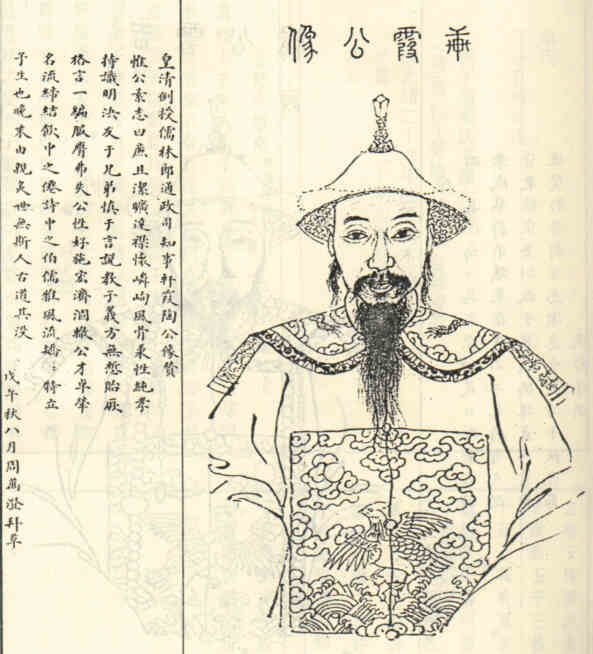 軒霞公像
皇清例授儒林郎通政司知事軒霞陶公像贊
惟公素志曰廉且潔曠達襟懷嶙峋風骨秉性純孝
持識明決友于兄弟慎于言說教子義方無愆貽厥
格言一編服膺弗失公性好施宏濟涸轍公才卓犖
名流締結飲中之僊詩中之伯儒雅風流矯〻特立
予生也晚未由親炙世無斯人古道其沒
戊午秋八月周萬澄拜草